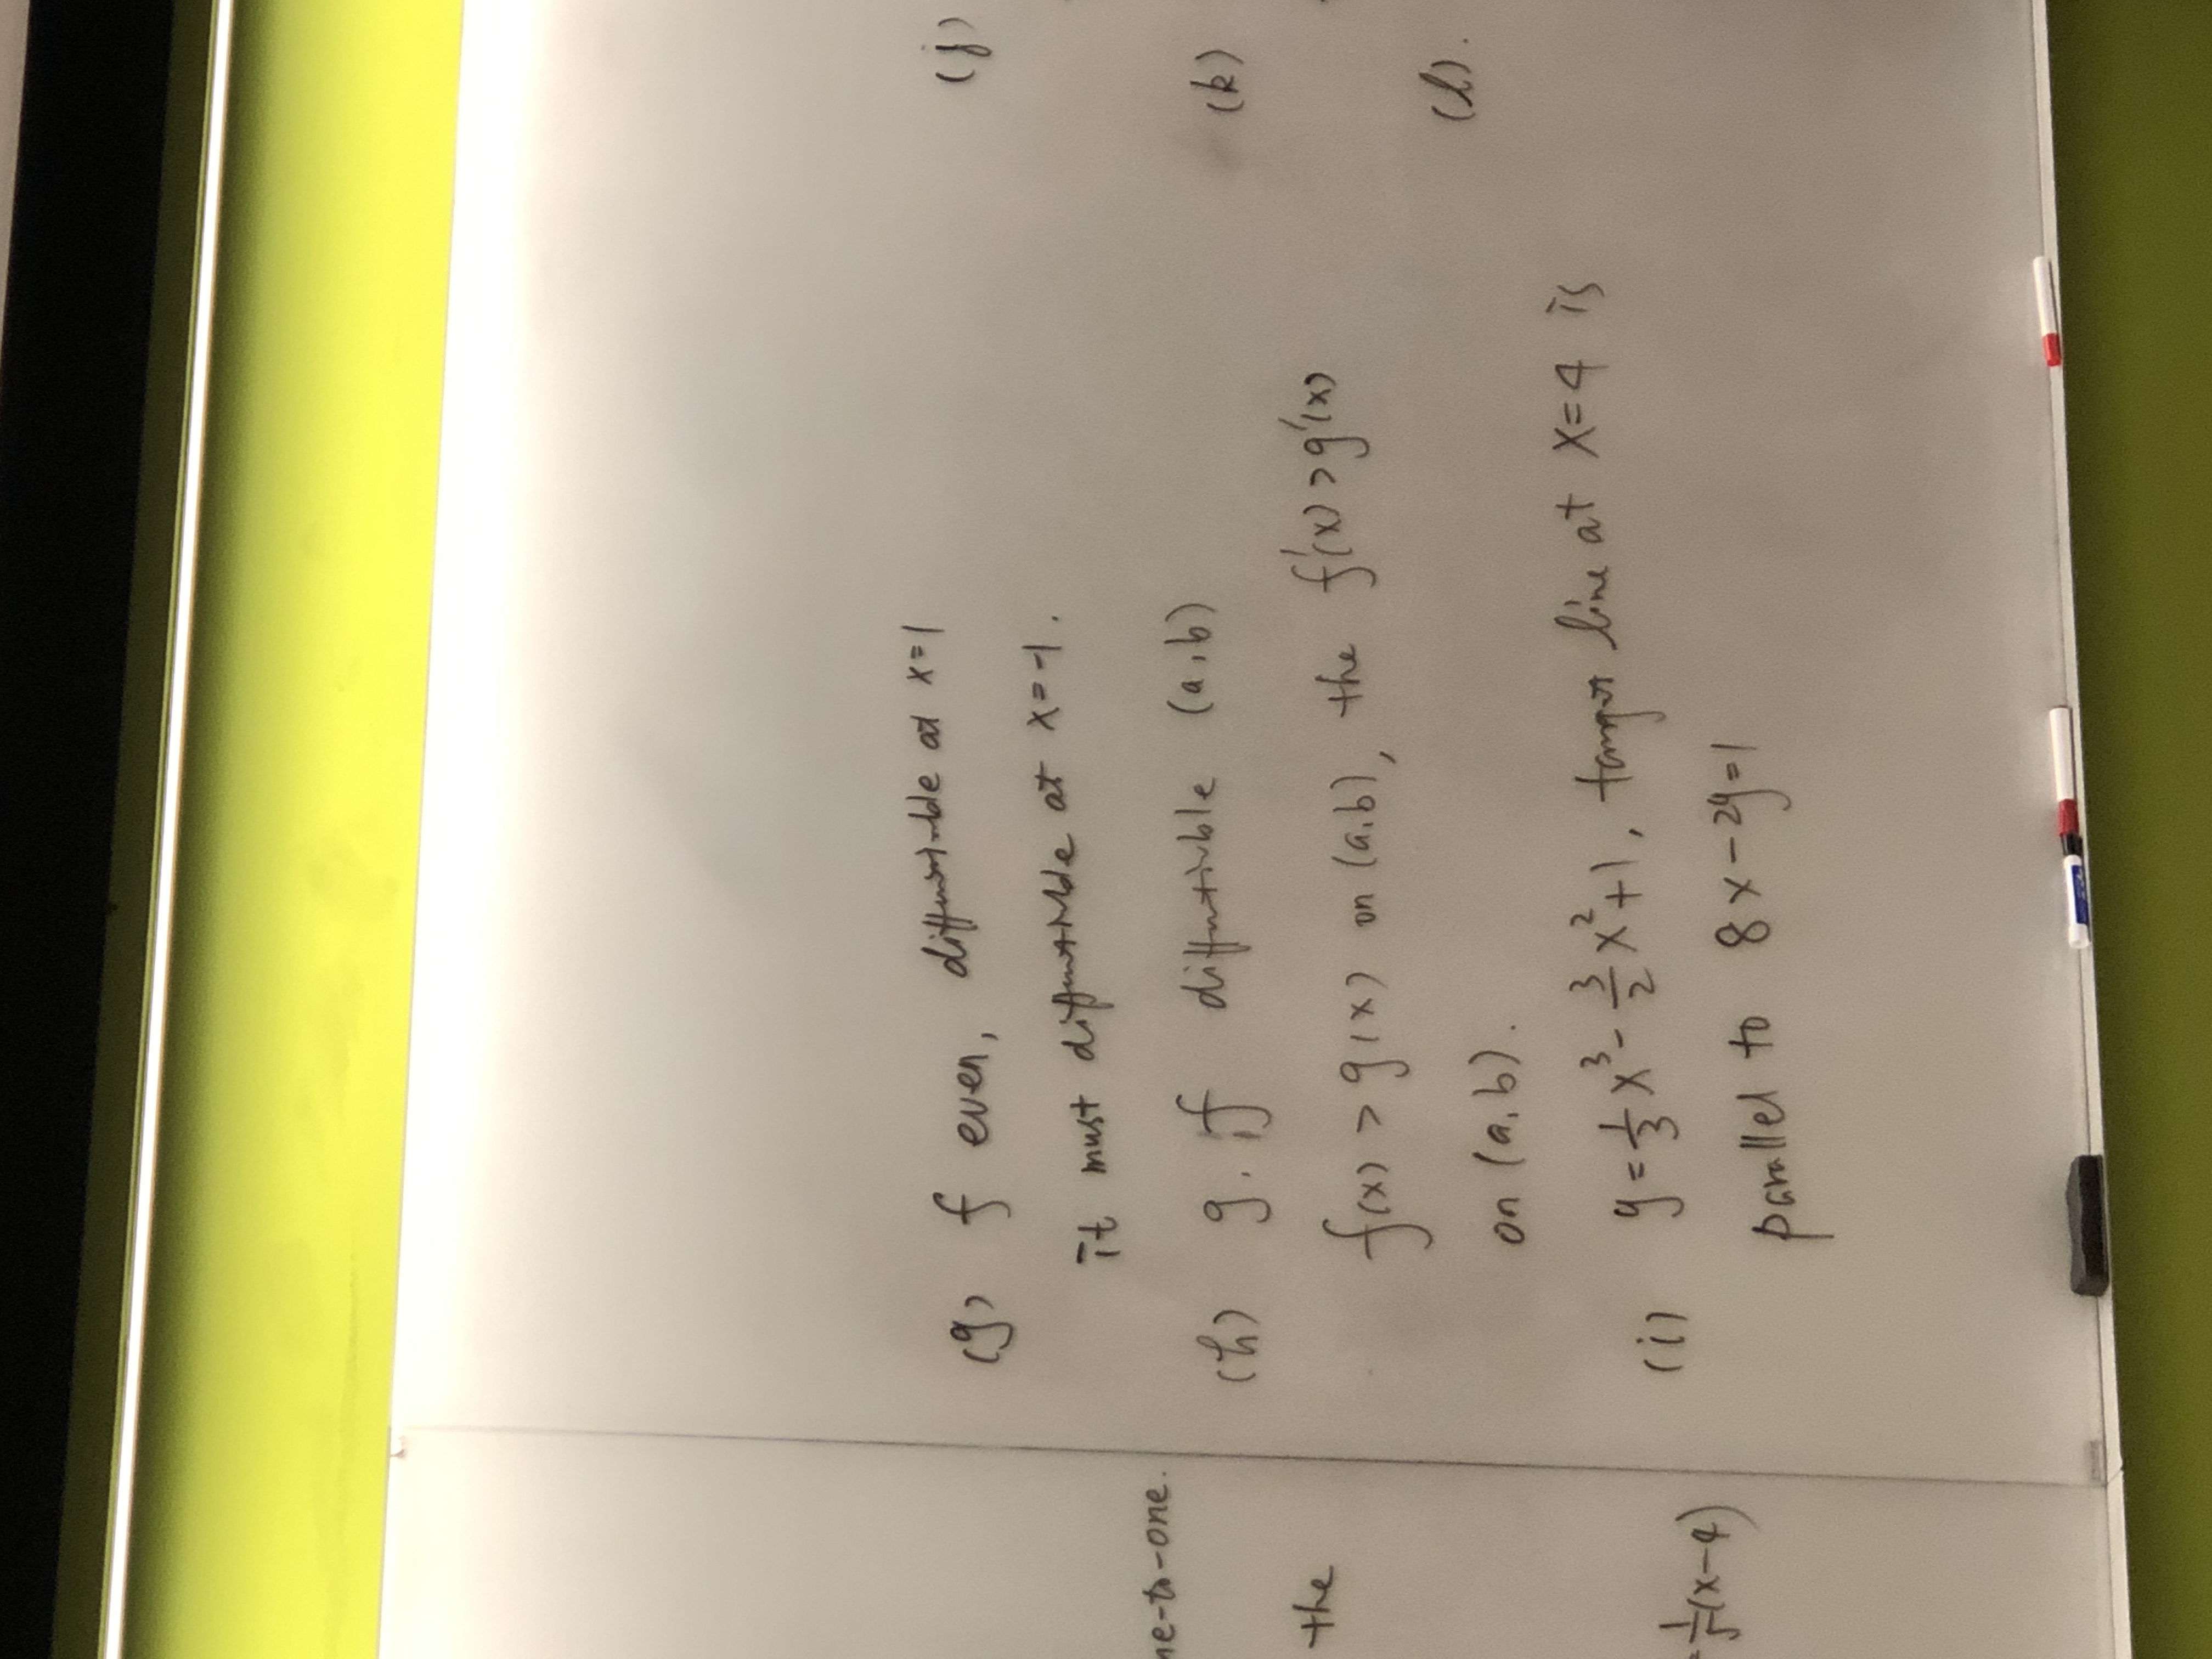 ne-to-one.
the
=1/5(x-4)
(g) f even, differentiable at x=1
it must differentiable at x=-1.
(h) g, f differentiable (a,b)
f(x) > g(x) on (a,b), the f'(x) > g'(x)
on (a,b).
(i) y = 1/3 x³ - 3/2 x² + 1, tangent line at x=4 is
parallel to 8x-2y=1
(j)
(k)
(l).